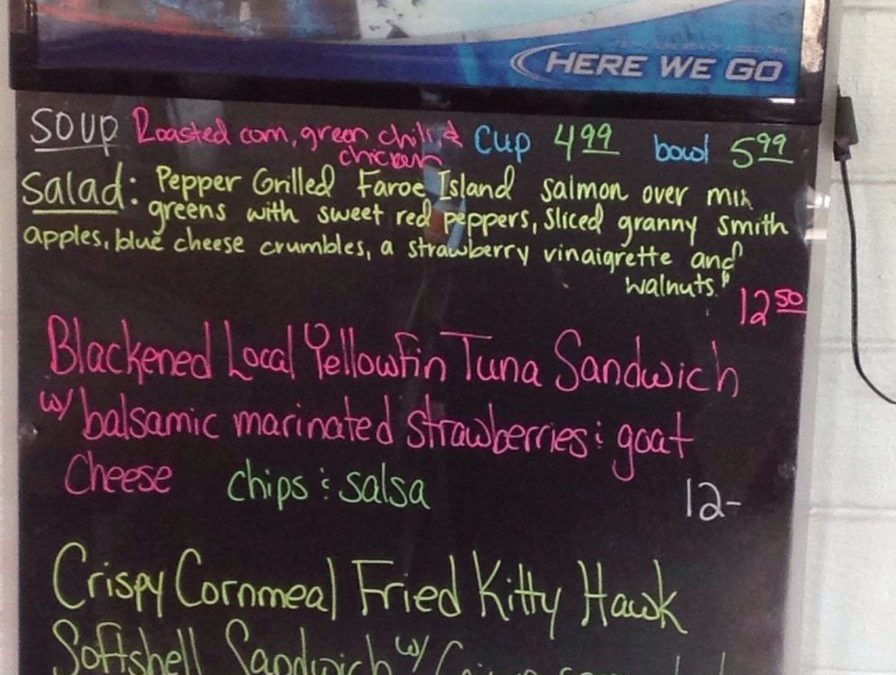 HERE WE GO
SOUP Roasted corn, green chili & chicken cup 4.99 bowl 5.99
Salad: Pepper Grilled Faroe Island salmon over mix
greens with sweet red peppers, sliced granny smith
apples, blue cheese crumbles, a strawberry vinaigrette and
walnuts 12.50
Blackened Local Yellowfin Tuna Sandwich
w/ balsamic marinated strawberries & goat
Cheese chips & salsa 12-
Crispy Cornmeal Fried Kitty Hawk
Softshell Sandwich w/